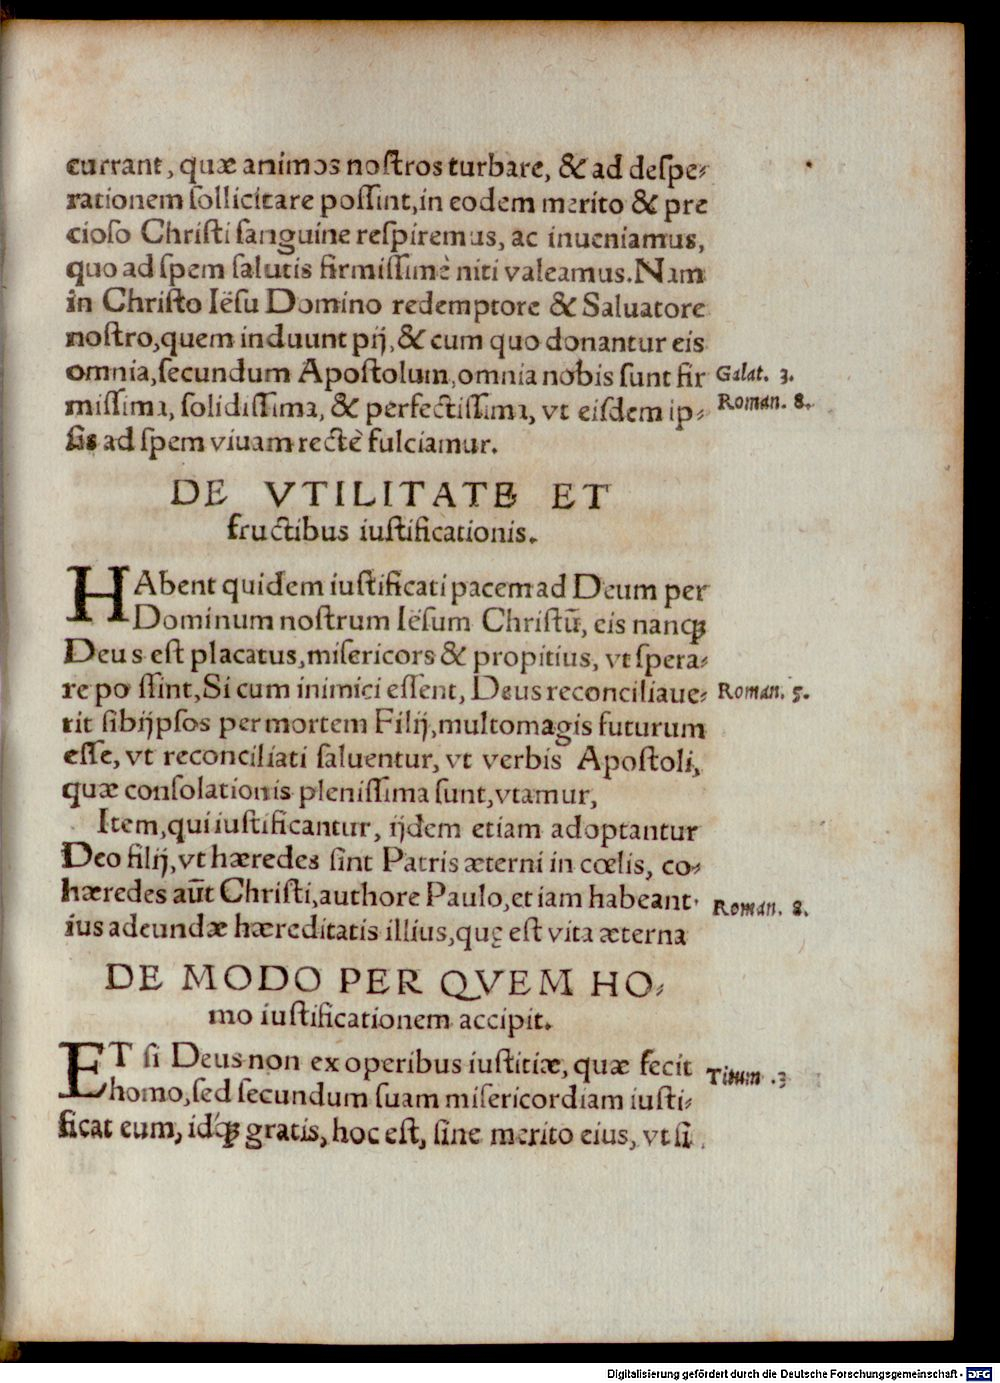 currant, quæ animos nostros turbare, & ad despe-
rationem sollicitare possint, in eodem merito & pre
cioso Christi sanguine respiremus, ac inueniamus,
quo ad spem salutis firmissimè niti valeamus. Nam
in Christo Iësu Domino redemptore & Saluatore
nostro, quem induunt pij, & cum quo donantur eis
omnia, secundum Apostolum, omnia nobis sunt fir
Galat. 3.
missima, solidissima, & perfectissima, vt eisdem ip-
Roman. 8.
sis ad spem viuam rectè fulciamur.
DE VTILITATE ET
fructibus iustificationis.
HAbent quidem iustificati pacem ad Deum per
Dominum nostrum Iësum Christū, eis nanqꝫ
Deus est placatus, misericors & propitius, vt spera-
re possint, Si cum inimici essent, Deus reconciliaue-
Roman. 5.
rit sibijpsos per mortem Filij, multomagis futurum
esse, vt reconciliati saluentur, vt verbis Apostoli,
quæ consolationis plenissima sunt, vtamur,
Item, qui iustificantur, ijdem etiam adoptantur
Deo filij, vt hæredes sint Patris æterni in cœlis, co-
hæredes aūt Christi, authore Paulo, etiam habeant
Roman. 8.
ius adeundæ hæreditatis illius, quę est vita æterna
DE MODO PER QVEM HO-
mo iustificationem accipit.
ET si Deus non ex operibus iustitiæ, quæ fecit
Titum .3
homo, sed secundum suam misericordiam iusti-
ficat eum, idqꝫ gratis, hoc est, sine merito eius, vt si
Digitalisierung gefördert durch die Deutsche Forschungsgemeinschaft - DFG